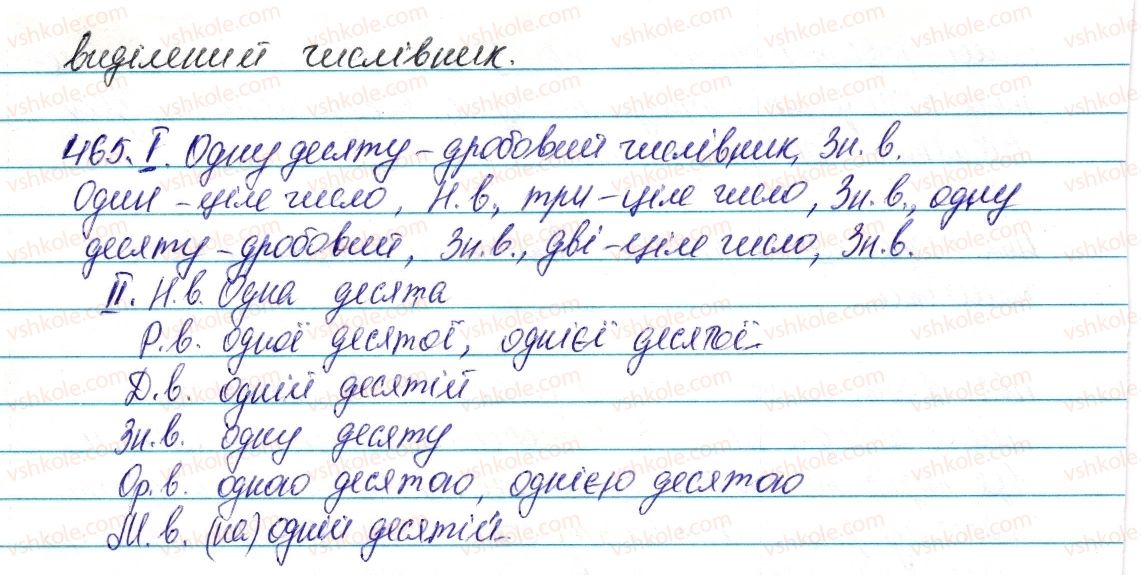 виділений числівник.
465. I. Одну десяту – дробовий числівник, Зн. в.
Один – ціле число, Н. в., три – ціле число, Зн. в., одну
десяту – дробовий, Зн. в., дві – ціле число, Зн. в.
II. Н. в. Одна десята
Р. в. одної десятої, однієї десятої
Д. в. одній десятій
Зн. в. одну десяту
Ор. в. одною десятою, однією десятою
М. в. (на) одній десятій